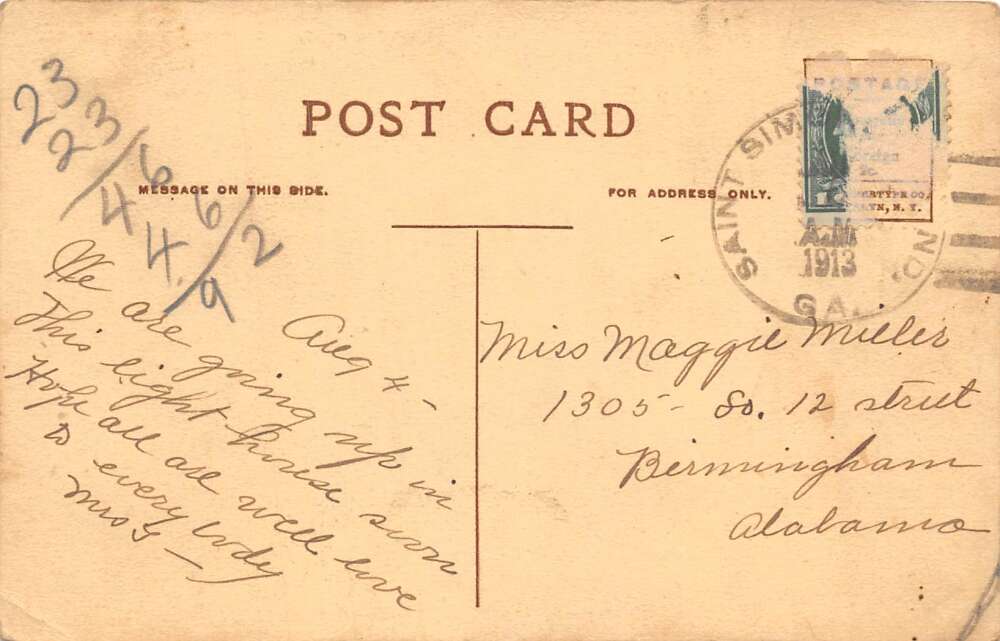 POST CARD
MESSAGE ON THIS SIDE.
FOR ADDRESS ONLY.
POSTAGE
N, N. Y.
SAINT SIM ND. GA.
A.M
1913
23
23/66
44/2
9
Aug 4 -
We are going up in
This light house soon
Hope all are well love
to every body
Mrs
Miss Maggie Miller
1305 - So. 12 street
Birmingham
Alabama